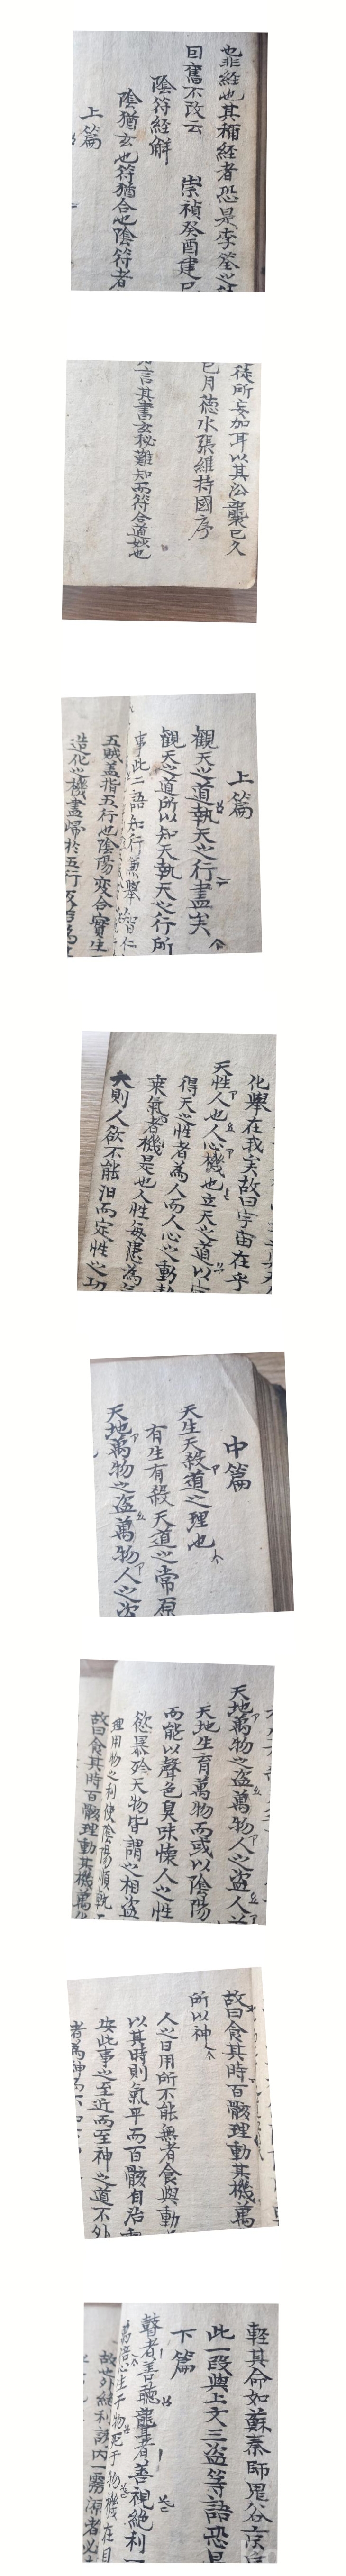 也非経也其稱経者恐是李筌之
回舊不改云 崇禎癸酉建巳
陰符經解
陰猶玄也符猶合也陰符者
上篇
徒所妄加耳以其㳂襲已久
巳月德水張維持國序
言其書玄秘難知而符合道妙也
上篇
觀天之道執天之行盡矣
觀天之道所以知天執天之行所
事此二語知行兼擧智仁
五賊盖指五行也陰陽変合實生
造化之機盡歸於五行
化擧在我矣故曰宇宙在乎
天性人也人心機也立天之道以
得天之性者為人而人心之動
乘氣者機是也人性每患為
大則人欲不能汨而定性之功
中篇
天生天殺道之理也
有生有殺天道之常原
天地萬物之盗萬物人之盗
天地萬物之盗萬物人之盗人
天地生育萬物而或以陰陽
而能以聲色臭味懐人之性
慾暴殄天物皆謂之相盗
理用物之利使陰陽順軌
故曰食其時百骸理動其機萬
故曰食其時百骸理動其機萬
所以神
人之日用所不能無者食與動
以其時則氣平而百骸自治
按此事之至近而至神之道不外
者為神
輕其命如蘇秦師鬼谷
此一段與上文三盗等語恐
下篇
瞽者善聽聾者善視絶利一
心生于物死于物機在目
故也外絶利誘内一